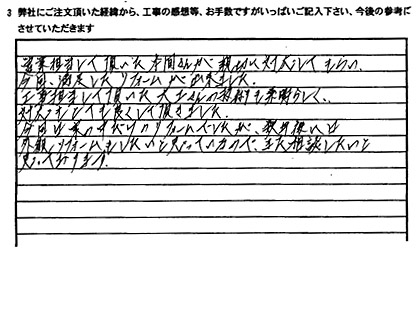 3 弊社にご注文頂いた経緯から、工事の感想等、お手数ですがいっぱいご記入下さい、今後の参考に
させていただきます
営業担当して頂いた本間さんが、親切に対応してもらい、
今回、満足したリフォームが出来ました。
工事担当して頂いた大工さんの技術も素晴らしく、
対応もとても良くして頂きました。
今回は家の中だけのリフォームでしたが、数年後には
外観リフォームもしたいと思っているので、また相談したいと
思っております。